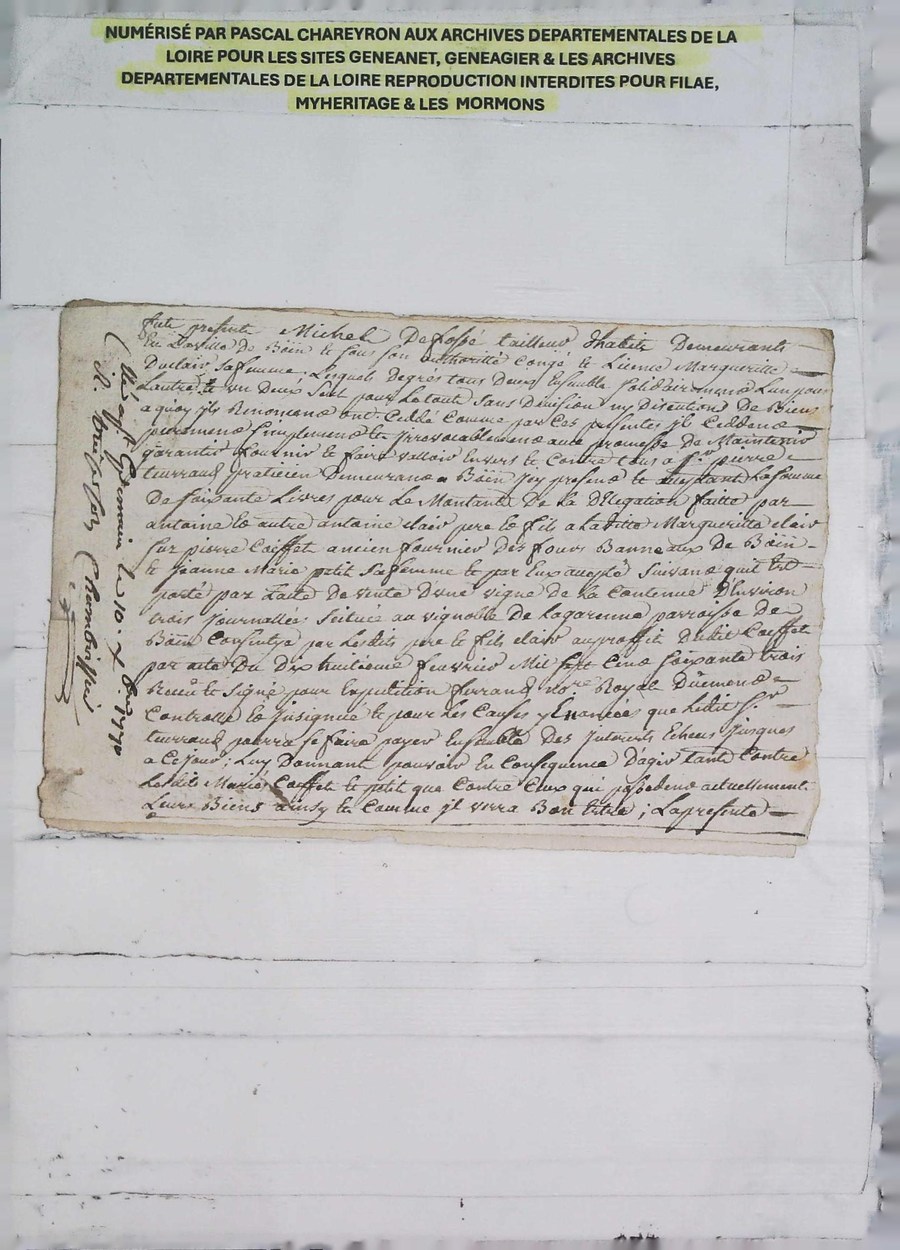 NUMÉRISÉ PAR PASCAL CHAREYRON AUX ARCHIVES DEPARTEMENTALES DE LA
LOIRE POUR LES SITES GENEANET, GENEAGIER & LES ARCHIVES
DEPARTEMENTALES DE LA LOIRE REPRODUCTION INTERDITES POUR FILAE,
MYHERITAGE & LES MORMONS
fute presente Michel Defossé tailleur d'habits Demeurants
En Laville De Böën et sous son authorité Congé et Licence Margueritte
Duclair safemme Lesquels Degrés tous Deux Ensemble solidairement Lun pour
Lautre et un Deux seul pour Letout sans Division ny Discution De Biens
a quoy ils Renoncent ont Ceddé Comme par Ces presentes ils Ceddent
purement simplement et irrevocablement aux promesse De Maintenir
garantir fournir et faire valloir Envers et Contre tous a sr. pierre
turraud praticien Demeurant a Böën icy present et La somme
De soixante Livres pour Le Montant De La Délégation faitte par
antoine et autre antoine clair pere et fils a Laditte Margueritte clair
sur pierre Coiffet ancien fournier Des fours Banneaux De Böën
et jeanne Marie petit safemme et par Eux accepté suivant quil Est
porté par Lacte de vente D'une vigne de la Contenue D'Environ
trois journalles scitué au vignoble De Lagarenne parroisse De
Böën Consentye par Lesdits pere et fils clair auproffit Dudit Coiffet
par acte Du Dix huitieme feuvrier Mil sept Cent soixante trois
Receu et signé pour Expedition ferrand nore Royal Düement
Controllé et Insignué et pour Les Causes y Enancées que Ledit sr.
turraud pourra se faire payer Ensemble Des Interets Echeus jusques
a Cejour; Luy Donnant pouvoir En Consequence D'agir tant Contre
Lesdits Mariés Coiffet et petit que Contre Ceux qui possedent actuellement
Leurs Biens ainsy et Comme il verra Bon Estre; Lapresente
Germain le 10. xbre. 1770
R.